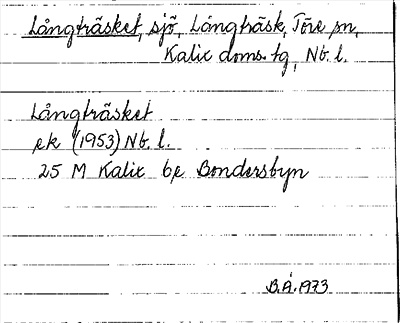 Långträsket, sjö, Långträsk, Töre sn,
Kalix doms. tg, Nb. l.
Långträsket
ek (1953) Nb. l.
25 M Kalix be Bondersbyn
B.Å. 1973